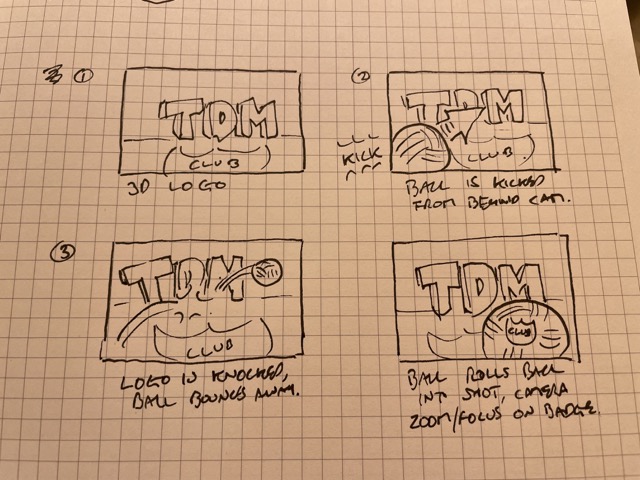 ①
TDM
CLUB
3D LOGO
②
TDM
CLUB
KICK
BALL IS KICKED
FROM BEHIND CAM.
③
TDM
CLUB
LOGO IS KNOCKED,
BALL BOUNCES AWAY.
TDM
CLUB
BALL ROLLS BALL
INT SHOT, CAMERA
ZOOM/FOCUS ON BADGE.